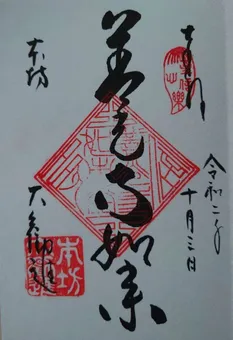 奉拝
令和二年
十月三日
善光寺如来
本坊
大勧進